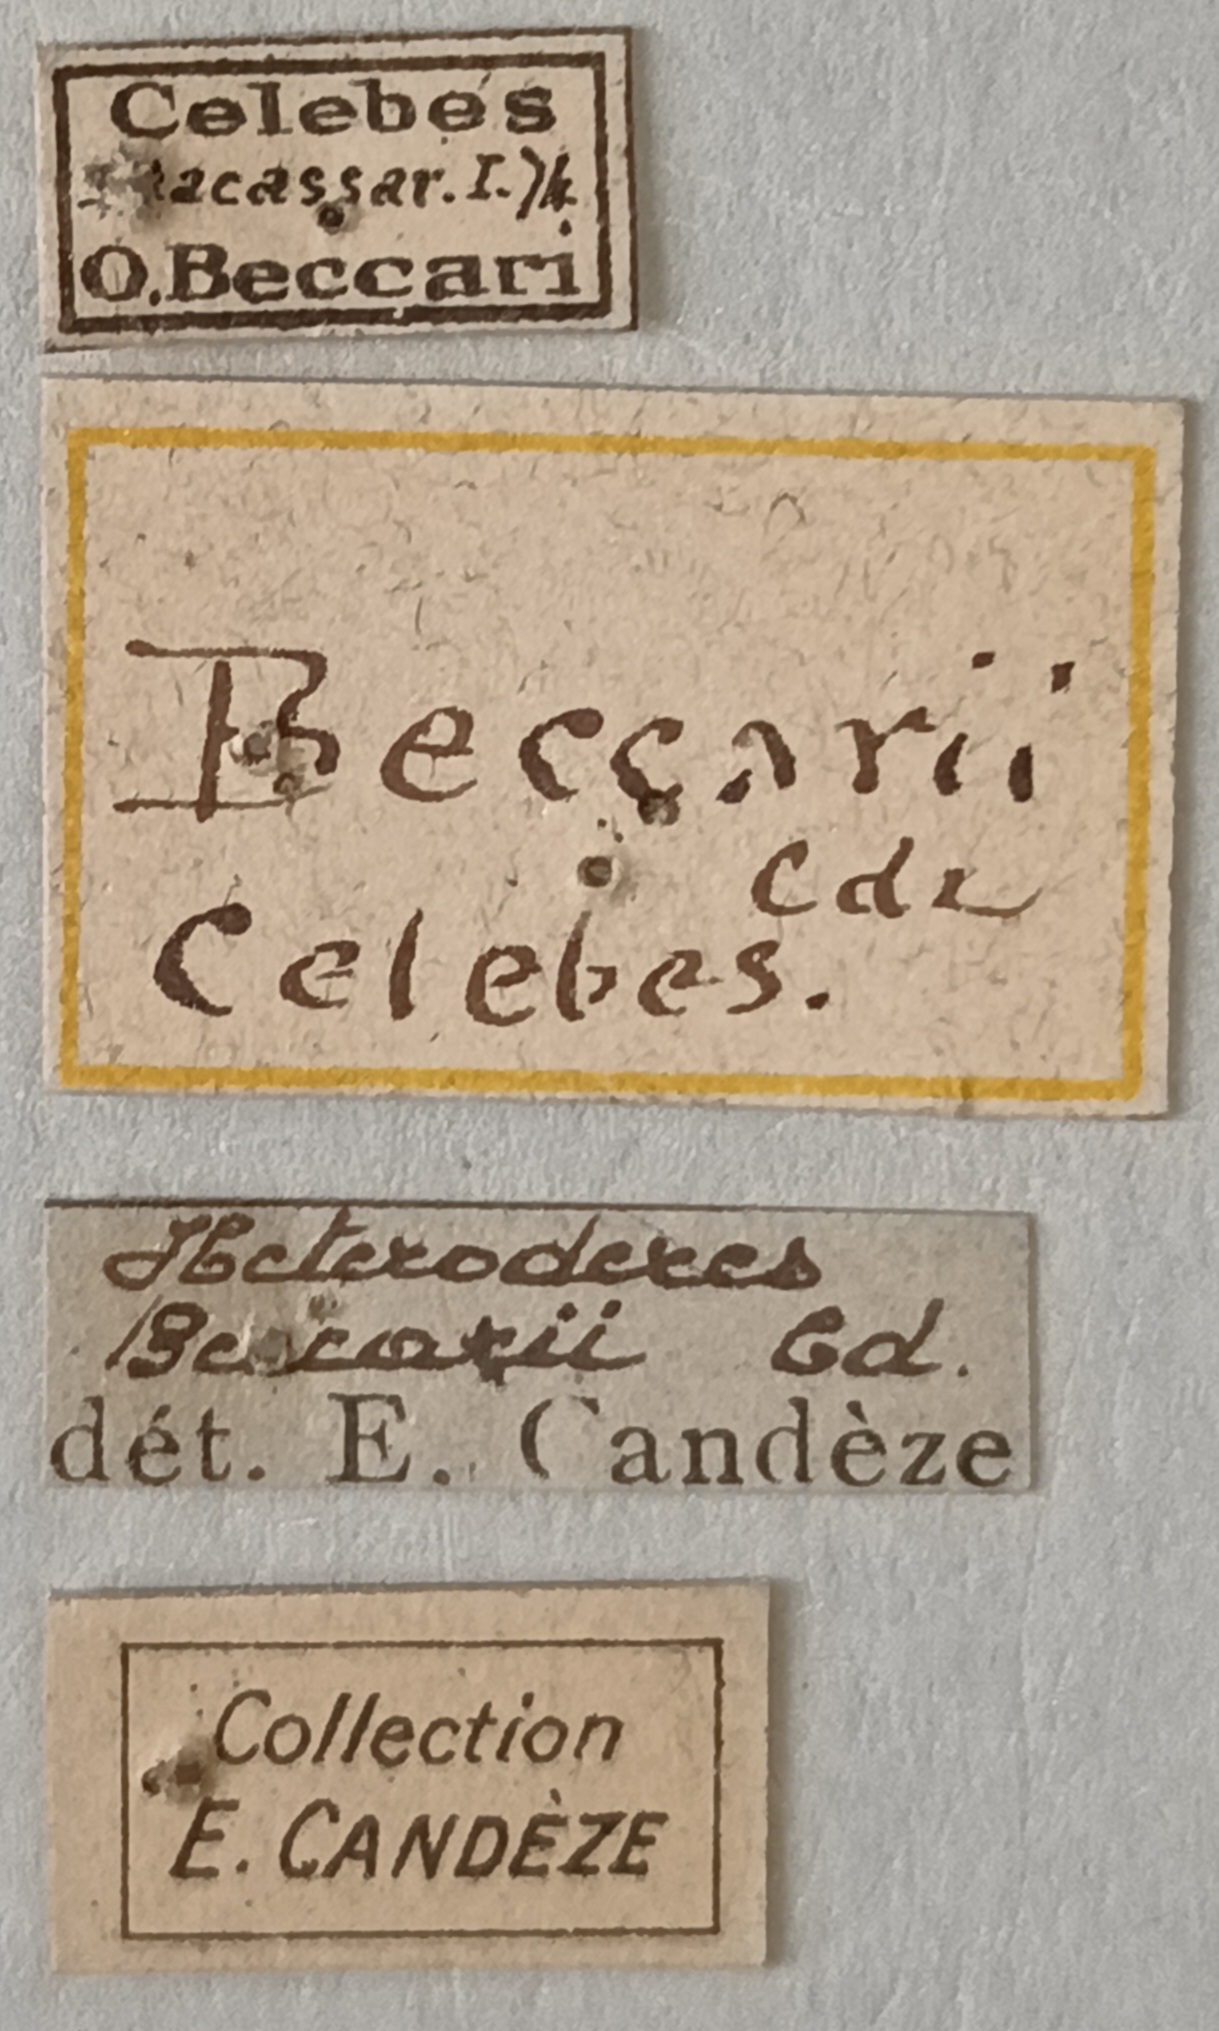 Celebes
Macassar. I. 74.
O. Beccari
Beccarii
Cdz
Celebes.
Heteroderes
Beccarii Cd.
dét. E. Candèze
Collection
E. CANDÈZE